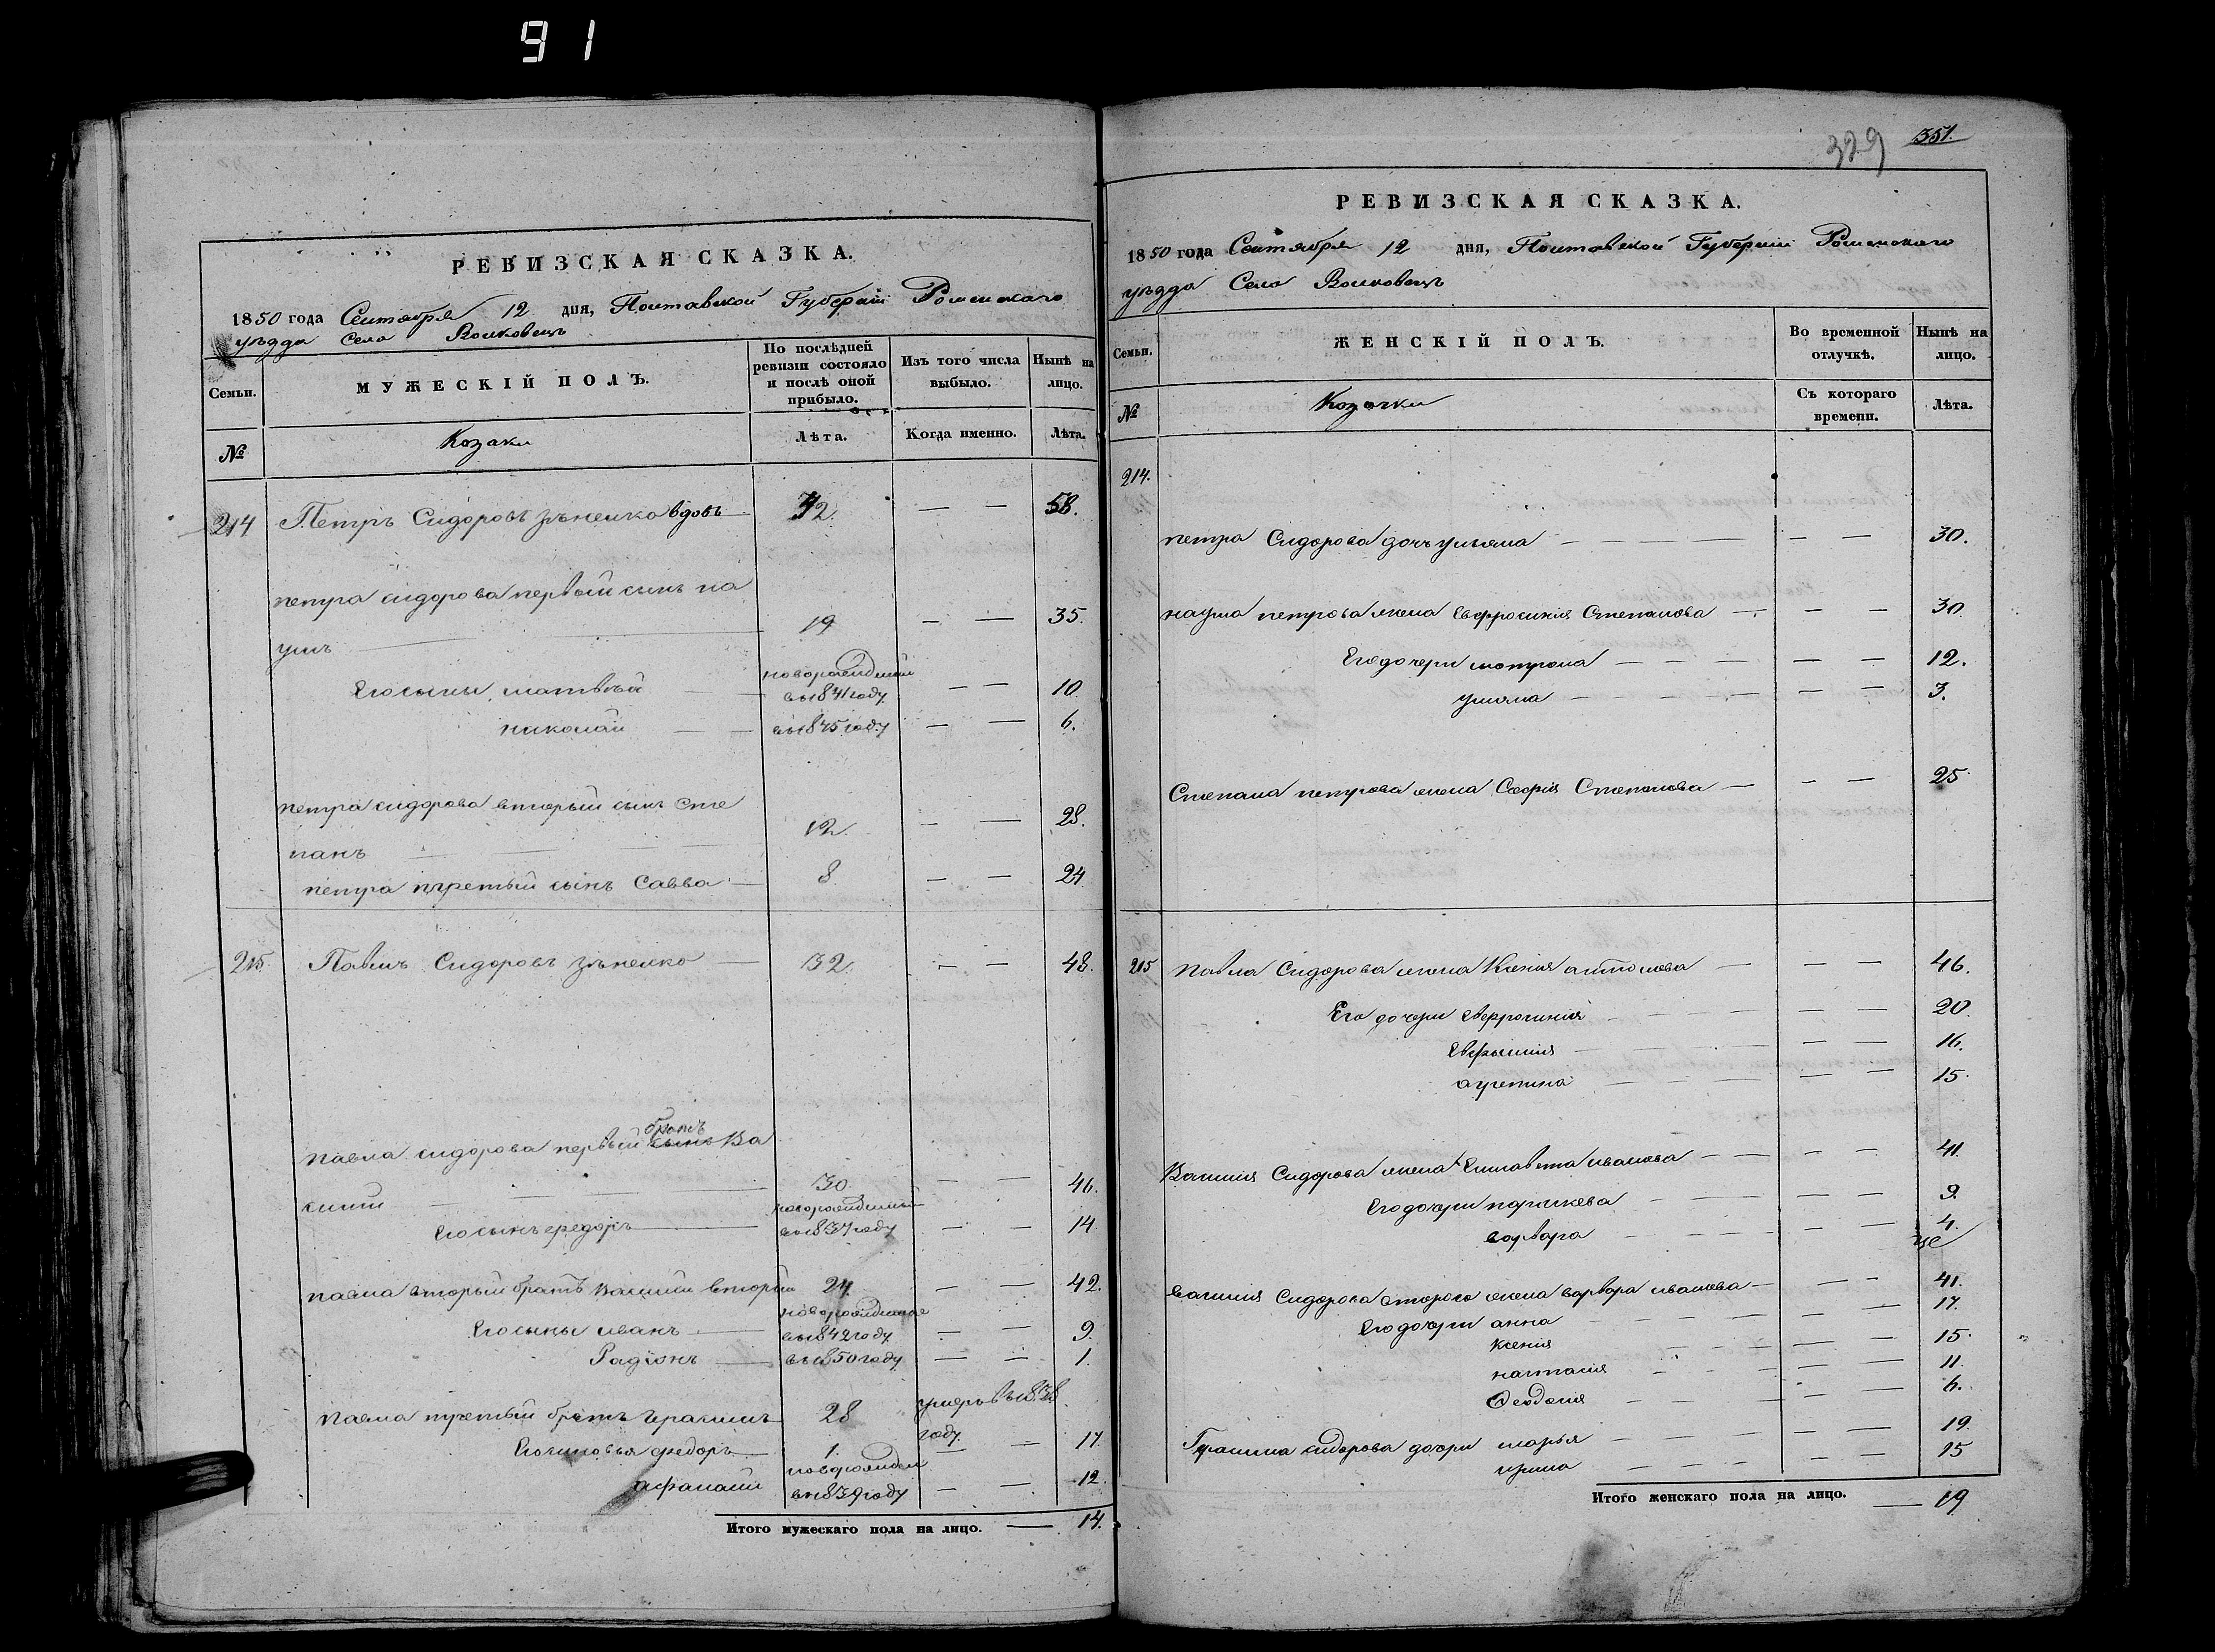 91
РЕВИЗСКАЯ СКАЗКА.
1850 года Сентября 12 дня, Полтавской Губернiи Роменского
уѣзда Села Волковецъ
Семьи.
МУЖЕСКIЙ ПОЛЪ.
По послѣдней ревизiи состояло и послѣ оной прибыло.
Изъ того числа выбыло.
Нынѣ на лицо.
№
Козаки
Лѣта.
Когда именно.
Лѣта.
214 Петръ Сидоровъ вдовъ — — 58.
петра сидорова первый сынъ на
умъ 19 — — 35.
Его сыны матвѣй новорожденный въ 1841 году — — 10.
николай въ 1845 году — — 6.
петра сидорова вторый сынъ Сте
панъ 12. — — 28.
петра третый сынъ Савва 8 — — 24
215. Павлъ Сидоровъ 32 — — 48.
павла сидорова первый сынъ братъ Ва
силiй 30 — — 46.
Его сынъ федоръ новорожденный въ 1837 году — — 14
павла вторый братъ василiй вторый — — 42.
Его сыны иванъ новорожденные въ 1842 году — — 9.
Радiонъ въ 1850 году — — 1.
павла третый братъ герасимъ 28 умеръ въ году
Его сыновья федоръ 1. — — 17.
афанасiй новорожден въ 1839 году — — 12.
Итого мужескаго пола на лицо. — 14.
329 351.
РЕВИЗСКАЯ СКАЗКА.
1850 года Сентября 12 дня, Полтавской Губернiи Роменского
уѣзда Села Волковецъ
Семьи.
ЖЕНСКIЙ ПОЛЪ.
Во временной отлучкѣ.
Нынѣ на лицо.
№
Козачки
Съ котораго времени.
Лѣта.
214.
петра Сидорова дочь ульяна — — 30.
наума петрова жена Евфросинiя Степанова — — 30
Его дочери мотрона — — 12.
ульяна — — 3.
Степана петрова жена Софiя Степанова — — 25
215 павла Сидорова жена Ксенiя антонова — — 46.
Его дочери Евфросинiя — — 20
Евфимiя — — 16.
агрепина — — 15.
Василiя Сидорова жена Елисавета иванова — — 41
Его дочери параскева — — 9.
варвара — — 4.
василiя Сидорова второго жена варвара иванова — — 41.
Его дочери анна — — 17.
ксенiя — — 15.
настасiя — — 11.
Феодосiя — — 6.
Герасима сидорова дочери марья — — 19.
ирина — — 15
Итого женскаго пола на лицо. — 19